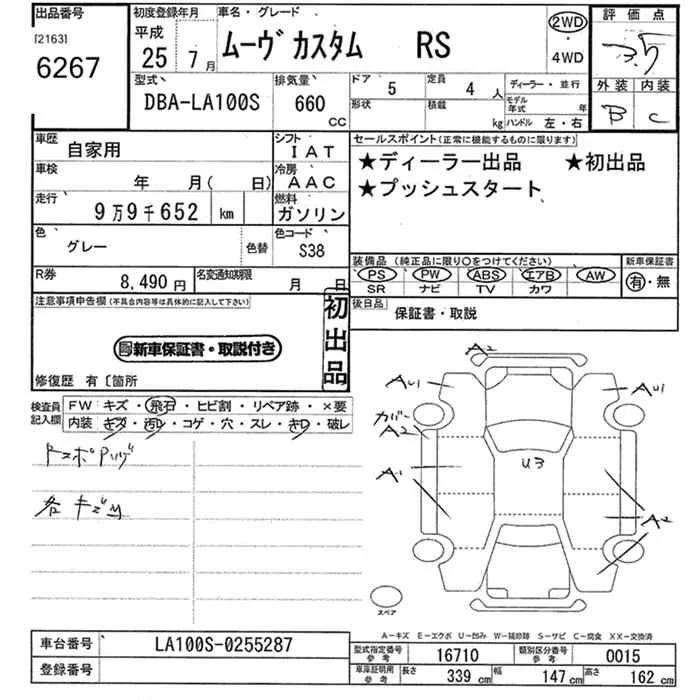 出品番号 初度登録年月 車名・グレード 評価点
[2163] 平成 ムーヴ カスタム RS 2WD
6267 25 7月 ・ 3.5
4WD
型式 排気量 ドア 5 定員 4人 ディーラー・並行 外装 内装
DBA-LA100S 660 cc 形状 積載 kg モデル年式 年 B C
ハンドル 左・右
車歴 自家用 シフト IAT セールスポイント(正常に機能するものに限ります)
車検 年 月( 日) 冷房 AAC ★ディーラー出品 ★初出品
走行 9万9千652 km 燃料 ガソリン ★プッシュスタート
色 グレー 色替 色コード S38
装備品(純正品に限り○をつけてください) 新車保証書
R券 8,490円 名変通知期限 月 日 PS PW ABS エアB AW 有・無
SR ナビ TV カワ
注意事項申告欄(不具合内容等は具体的に記入して下さい) 初出品 後日品 保証書・取説
新車保証書・取説付き
修復歴 有〔箇所
検査員記入欄 FW キズ・飛石・ヒビ割・リペア跡・×要
内装 キズ・汚れ・コゲ・穴・スレ・キワ・破レ
A2
AU1 AU1
カバー
A2
U3
A1
A2
各キズ凹
スペア
A-キズ E-エクボ U-凹み W-補修跡 S-サビ C-腐食 XX-交換済
車台番号 LA100S-0255287 型式指定番号参考 16710 類別区分番号参考 0015
登録番号 車庫証明用参考 長さ 339cm 幅 147cm 高さ 162cm